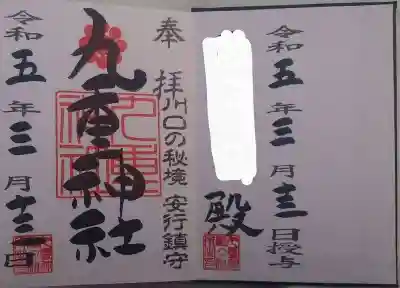 令和五年三月十三日授与
殿
奉拝
川口の秘境 安行鎮守
九重神社
令和五年三月十三日